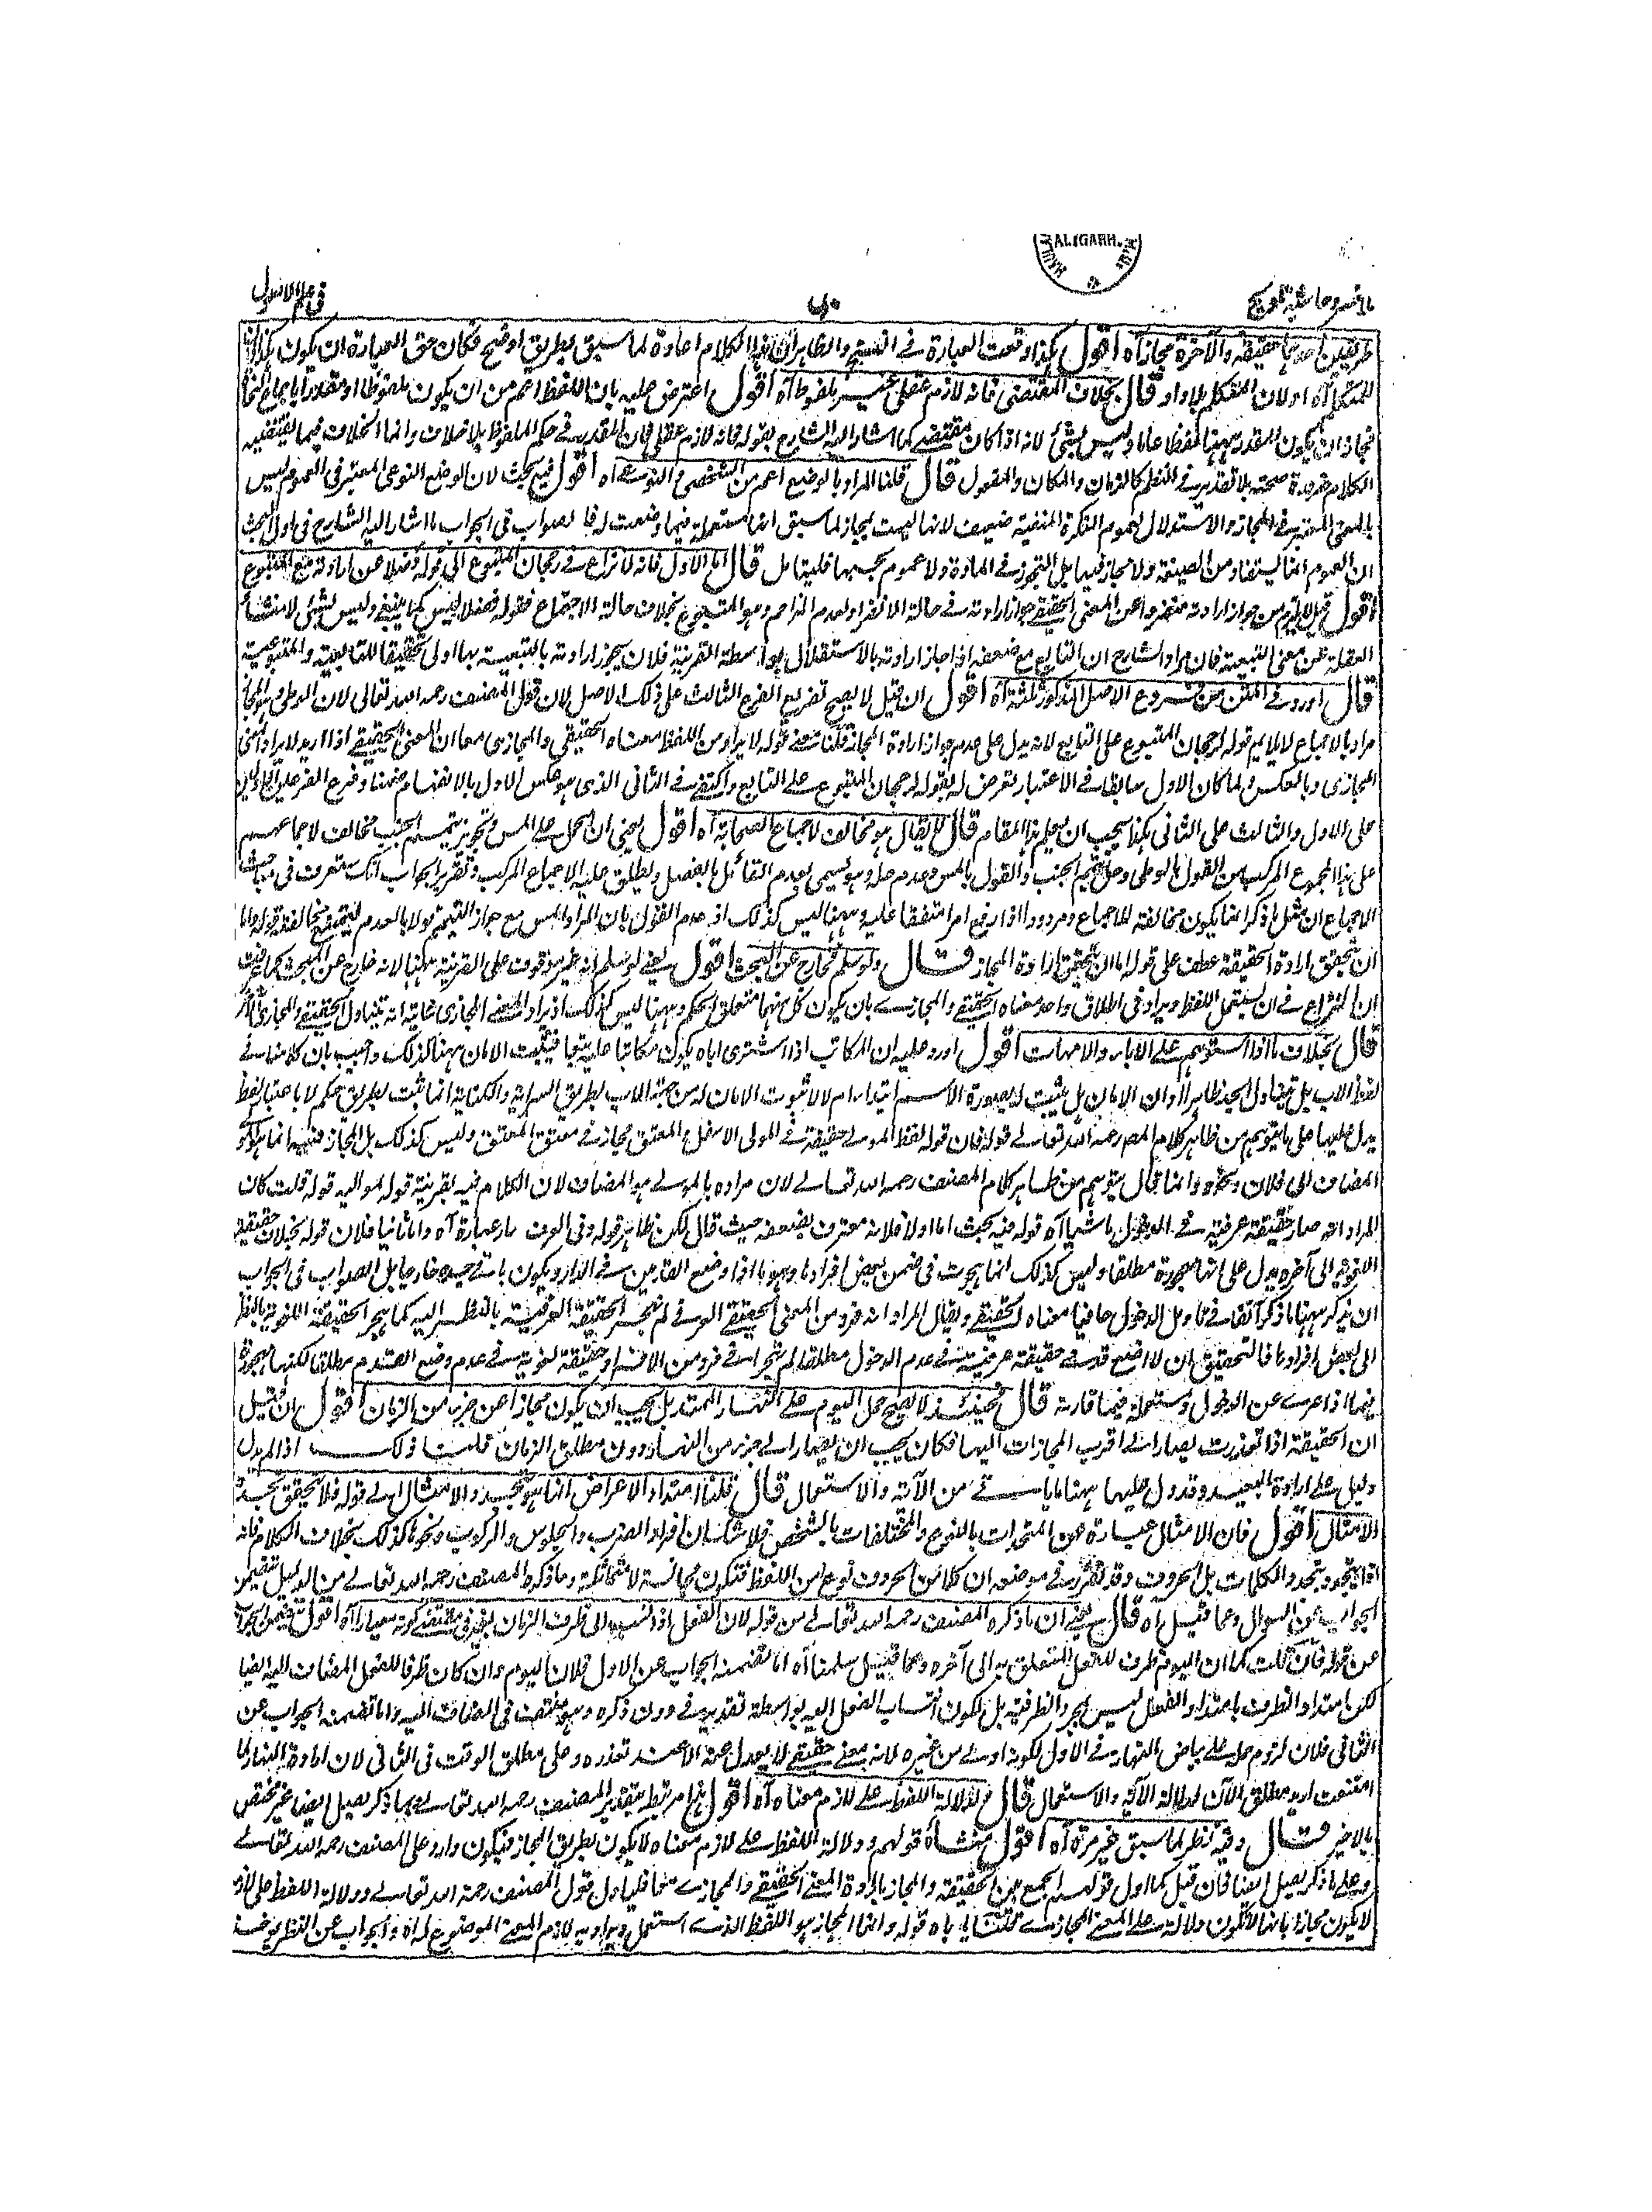 ALIGARH
ملا خسرو حاشية تلويح
٥٠
في علم الاصول
طريقين احدهما حقيقة والآخرة مجازا آه اقول هكذا وقعت العبارة في النسخ والظاهر ان هذا الكلام اعادة لما سبق بطريق اوضح فكان حق العبارة ان يكون هكذا
للمتكلم آه اولان المتكلم بلا واو قال بخلاف المقتضى فانه لازم عقلي غير ملفوظ آه اقول اعترض عليه بان اللفظ اعم من ان يكون ملفوظا او مقدرا باجماع النحاة
فجاز ان يكون المقدر ههنا لفظا عاما وليس بشئ لانه اذا كان مقتضى كما اشار اليه الشارح بقوله فانه لازم عقلي فان المقدر في حكم الملفوظ بلا خلاف وانما الخلاف فيما يقتضيه
الكلام ضرورة صحته بلا تقدير في النظم كالزمان والمكان والمفعول قال قلنا المراد بالوضع اعم من الشخصي والنوعي آه اقول فيه بحث لان الوضع النوعي المعتبر في العموم ليس
بالمعنى المعتبر في المجاز والاستدلال بعموم النكرة المنفية ضعيف لانها ليست بمجاز لما سبق انها مستعملة فيما وضعت له فالصواب في الجواب ما اشار اليه الشارح في اول البحث
ان العموم انما يستفاد من الصيغة ولا مجاز فيها بل التجوز في المادة ولا عموم بحسبها فليتامل قال اما الاول فانه لا نزاع في رجحان المتبوع الى قوله فضلا عن ارادته مع المتبوع
اقول قيل لا يلزم من جواز ارادته منفردا عن المعنى الحقيقي جواز ارادته في حالة الانفراد لعدم المزاحم وهو المتبوع بخلاف حالة الاجتماع فقوله فضلا ليس كما ينبغي وليس بشئ لان منشأه
الغفلة عن معنى التبعية فان مراد الشارح ان التابع مع ضعفه اذا جاز ارادته بالاستقلال بواسطة القرينة فلان يجوز ارادته بالتبعية بها اولى تحقيقا للتابعية والمتبوعية
قال اورد في المتن من فروع الاصل المذكور ثلثة آه اقول ان قيل لا يصح تفريع الفرع الثالث على ذلك الاصل لان قول المصنف رحمه الله تعالى لان الوطى وهو المجاز
مراد بالاجماع لا يلايم قوله لرجحان المتبوع على التابع لانه يدل على عدم جواز ارادة المجاز قلنا معنى قوله لا يراد من اللفظ معناه الحقيقي والمجازي معا ان المعنى الحقيقي اذا اريد لا يراد المعنى
المجازي وبالعكس ولما كان الاول سابقا في الاعتبار تعرض له بقوله لرجحان المتبوع على التابع واكتفى في الثاني الذي هو عكس الاول بالانفهام ضمنا وفرع الفرعين الاولين
على الاول والثالث على الثاني هكذا يجب ان يعلم هذا المقام قال لا يقال هو مخالف لاجماع الصحابة آه اقول يعني ان الحمل على المس وتجويز تيمم الجنب مخالف لاجماعهم
على هذا المجموع المركب من القول بالوطى وحل تيمم الجنب والقول بالمس وعدم حله وهو يسمى بعدم القائل بالفصل ويطلق عليه الاجماع المركب وتقرير الجواب انك ستعرف في مباحث
الاجماع ان مثل ما ذكر انما يكون مخالفة للاجماع ومردودا اذا رفع امرا متفقا عليه وههنا ليس كذلك اذ عدم القول بان المراد المس مع جواز التيمم قولا بالعدم ليتحقق مخالفته قوله واما
ان يتحقق ارادة الحقيقة عطف على قوله اما ان يتحقق ارادة المجاز قال ولو سلم فخارج عن البحث اقول يعني لو سلم انه غير موقوف على القرينة ههنا لانه خارج عن المبحث كما عرفت
ان النزاع في ان يستعمل اللفظ ويراد في اطلاق واحد معناه الحقيقي والمجازي بان يكون كل منهما متعلق الحكم وههنا ليس كذلك اذ يراد المعنى المجازي غايته انه يتناول الحقيقي والمجازي آه
قال بخلاف ما اذا استؤمن على الآباء والامهات اقول اورد عليه ان المكاتب اذا اشترى اباه يكون مكاتبا عليه تبعا فيثبت الامان ههنا كذلك واجيب بان كلامنا في
لفظ الاب هل يتناول الجد ظاهرا وان الامان هل يثبت له بصورة الاسم ابتداء ام لا لا ثبوت الامان له من جهة الاب بطريق السراية والكتابة انما تثبت بطريق حكم لا باعتبار لفظ
يدل عليها على ما يتوهم من ظاهر كلام المصر رحمه الله تعالى قوله فان قوله لفظ المولى حقيقة في المولى الاسفل المعتق مجاز في معتق المعتق وليس كذلك بل المجاز فيه انما هو
المضاف الى فلان ونحوه وانما قال يتوهم من ظاهر كلام المصنف رحمه الله تعالى لان مراده بالمولى هو المضاف لان الكلام فيه بقرينة قوله لمواليه قوله قلت كان
المراد انه صار حقيقة عرفية في الدخول ماشيا آه قوله فيه بحث اما اولا فلانه معترف بضعفه حيث قال لكن ظاهر قوله وفي العرف صار عبارة آه واما ثانيا فلان قوله بخلاف حقيقته
اللغوية الى آخره يدل على انها مهجورة مطلقا وليس كذلك انما هجرت في ضمن بعض افرادها وهو ما اذا وضع القدمين في الدار ويكون باقي جسده خارجا بل الصواب في الجواب
ان يذكر ههنا ما ذكر آنفا في تاويل الدخول حافيا معناه الحقيقي ويقال المراد انه فرد من المعنى الحقيقي العرفي لم تهجر الحقيقة العرفية بالنظر اليه كما هجر الحقيقة اللغوية بالنظر
الى بعض افرادها فالتحقيق ان لا اضع قدمي حقيقة عرفية في عدم الدخول مطلقا لم تهجر اي في فرد من الافراد وحقيقة لغوية في عدم وضع القدم مطلقا لكنها مهجورة
فيما اذا عرى عن الدخول ومستعملة فيما قارنه قال فحينئذ لا يصح حمل اليوم على النهار الممتد بل يجب ان يكون مجازا عن جزء من الزمان اقول ان قيل
ان الحقيقة اذا تعذرت يصار الى اقرب المجازات اليها فكان يجب ان يصار الى جزء من النهار دون مطلق الزمان قلت ذلك اذا لم يدل
دليل على ارادة البعيد وقد دل عليها ههنا ما ياتي من الآية والاستعمال قال قلنا امتداد الاعراض انما هو بتجدد الامثال الى قوله فلا يتحقق تجدد
الامثال اقول فان الامثال عبارة عن المتحدات بالنوع والمختلفات بالشخص فلا شك ان افراد الضرب والجلوس والركوب ونحوها كذلك بخلاف الكلام فانه
انما يتجدد بتجدد الكلمات بل الحروف وقد تقرر في موضعه ان كلا من الحروف نوع من اللفظ فتكون مجانسة لا متماثلة وما ذكره المصنف رحمه الله تعالى من الدليل يتضمن
الجواب عن السوال وعما قيل آه قال يعني ان ما ذكره المصنف رحمه الله تعالى من قوله لان الفعل اذا نسب الى ظرف الزمان بغير في يقتضي كونه معيارا له آه اقول يتضمن الجواب
عن قوله فان قلت كما ان اليوم ظرف للفعل المتعلق به الى آخره وعما قيل سلمنا آه اما تضمنه الجواب عن الاول فلان اليوم وان كان ظرفا للفعل المضاف اليه ايضا
لكن امتداد الظرف بامتداد الفعل ليس لمجرد الظرفية بل لكون انتساب الفعل اليه بواسطة تقدير في دون ذكره وهو منتف في المضاف اليه واما تضمنه الجواب عن
الثاني فلان لزوم حمله على بياض النهار في الاول لكونه اولى من غيره لانه معنى حقيقي لا يعدل عنه الا عند تعذره وعلى مطلق الوقت في الثاني لان ارادة النهار لما
امتنعت اريد مطلق الآن لدلالة الآية والاستعمال قال فدلالة اللفظ على لازم معناه آه اقول هذا مرتبط بتقدير المصنف رحمه الله تعالى وبما ذكر يعمل ايضا غير مختص
بالاخير قال وفيه نظر لما سبق غير مرة آه اقول منشأه قولهم ودلالة اللفظ على لازم معناه لا يكون بطريق المجاز فيكون وارد على المصنف رحمه الله تعالى
وعلى ما ذكر يعمل ايضا فان قيل كما اول قولهم الجمع بين الحقيقة والمجاز بارادة المعنى الحقيقي والمجازي معا فليأول قول المصنف رحمه الله تعالى ودلالة اللفظ على لازم
لا يكون مجازا بانها لا تكون دلالة على المعنى المجازي قلنا يأباه قوله وانما المجاز هو اللفظ الذي استعمل ويراد به لازم المعنى الموضوع له آه والجواب عن النظر يوخذ